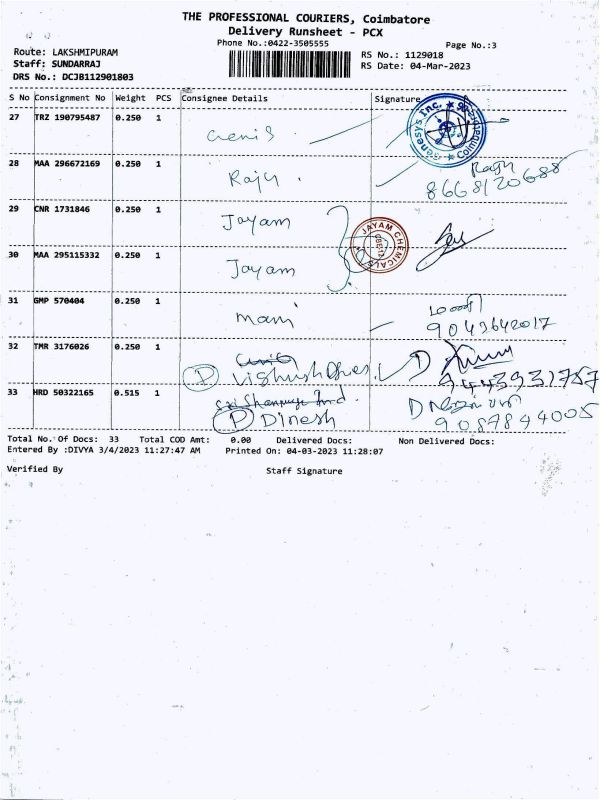 THE PROFESSIONAL COURIERS, Coimbatore
Delivery Runsheet - PCX
Phone No.:0422-3505555
Page No.:3
Route: LAKSHMIPURAM
RS No.: 1129018
Staff: SUNDARRAJ
RS Date: 04-Mar-2023
DRS No.: DCJB112901803
S No Consignment No Weight PCS Consignee Details Signature
27 TRZ 190795487 0.250 1
Genesys Inc. ★ Coimbatore
28 MAA 296672169 0.250 1 Raju . Raju
8668120688
29 CNR 1731846 0.250 1 Jayam
JAYAM CHEMICALS
30 MAA 295115332 0.250 1 Jayam
31 GMP 570404 0.250 1 mani மணி
9043642017
32 TMR 3176026 0.250 1
D 9443931757
33 HRD 50322165 0.515 1
D Dinesh
9087844005
Total No. Of Docs: 33 Total COD Amt: 0.00 Delivered Docs: Non Delivered Docs:
Entered By :DIVYA 3/4/2023 11:27:47 AM Printed On: 04-03-2023 11:28:07
Verified By Staff Signature